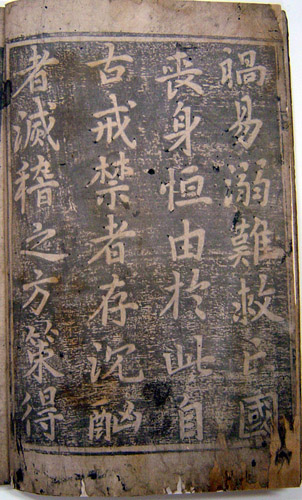 易溺難救亡國
喪身恒由於此自
古戒禁者存沉酗
者滅稽之方策得